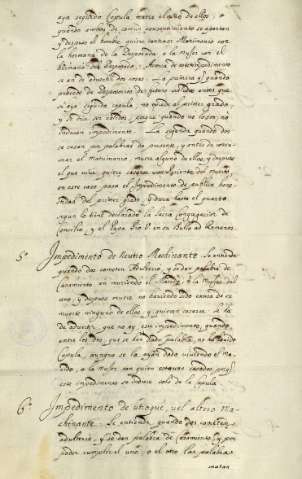 aya segundo Copula, muera alguno de ellos, o
quando ambos de comun consentimiento se apartan
y despues el Hombre quiere contraer Matrimonio con
la hermana de la Desposada, o la Muger con el
Hermano del Desposado. Acerca de este impedimento
se an de advertir dos cosas. La primera q quando
procede de Desposorios de futuro validos antes que
se aya seguido copula, no excede al primer grado,
y si eran validos; porque quando no lo son, no
inducen impedimento. La segunda quando dos
se casan por palabras de presente, y antes de consu-
mar el Matrimonio, muere alguno de ellos, y despues
el que vive quiere casarse con pariente del muerto
en este caso, pasa el impedimento de publica hones-
tidad del primer grado, y dura hasta el quarto
segun lo tiene declarado la Sacra Congregacion de
Concilio, y el Papa Pio V. en su Bulla Ad Romanum.
5º Impedimento de Neutro Machinante. Se entiende
quando dos cometen Adulterio, y se dan palabra de
Casamiento en muriendo el Marido, o la Muger del
uno, y despues muere no haviendo sido causa de su
muerte ninguno de ellos, y quieren casarse. A se
de advertir, que no ay este impedimento, quando
entre los dos, que se dan palabra, no ha havido
Copula, aunque se la ayan dado viviendo el Ma-
rido, o la Muger con quien estavan casados, porq
este impedimento se induce solo de la copula.
6º Impedimento de utroque, vel altero Ma-
chinante. Se entiende, quando dos cometen
adulterio, y se dan palabra de Casamiento, y por
poder cumplirse el uno, o el otro las palabra
matan